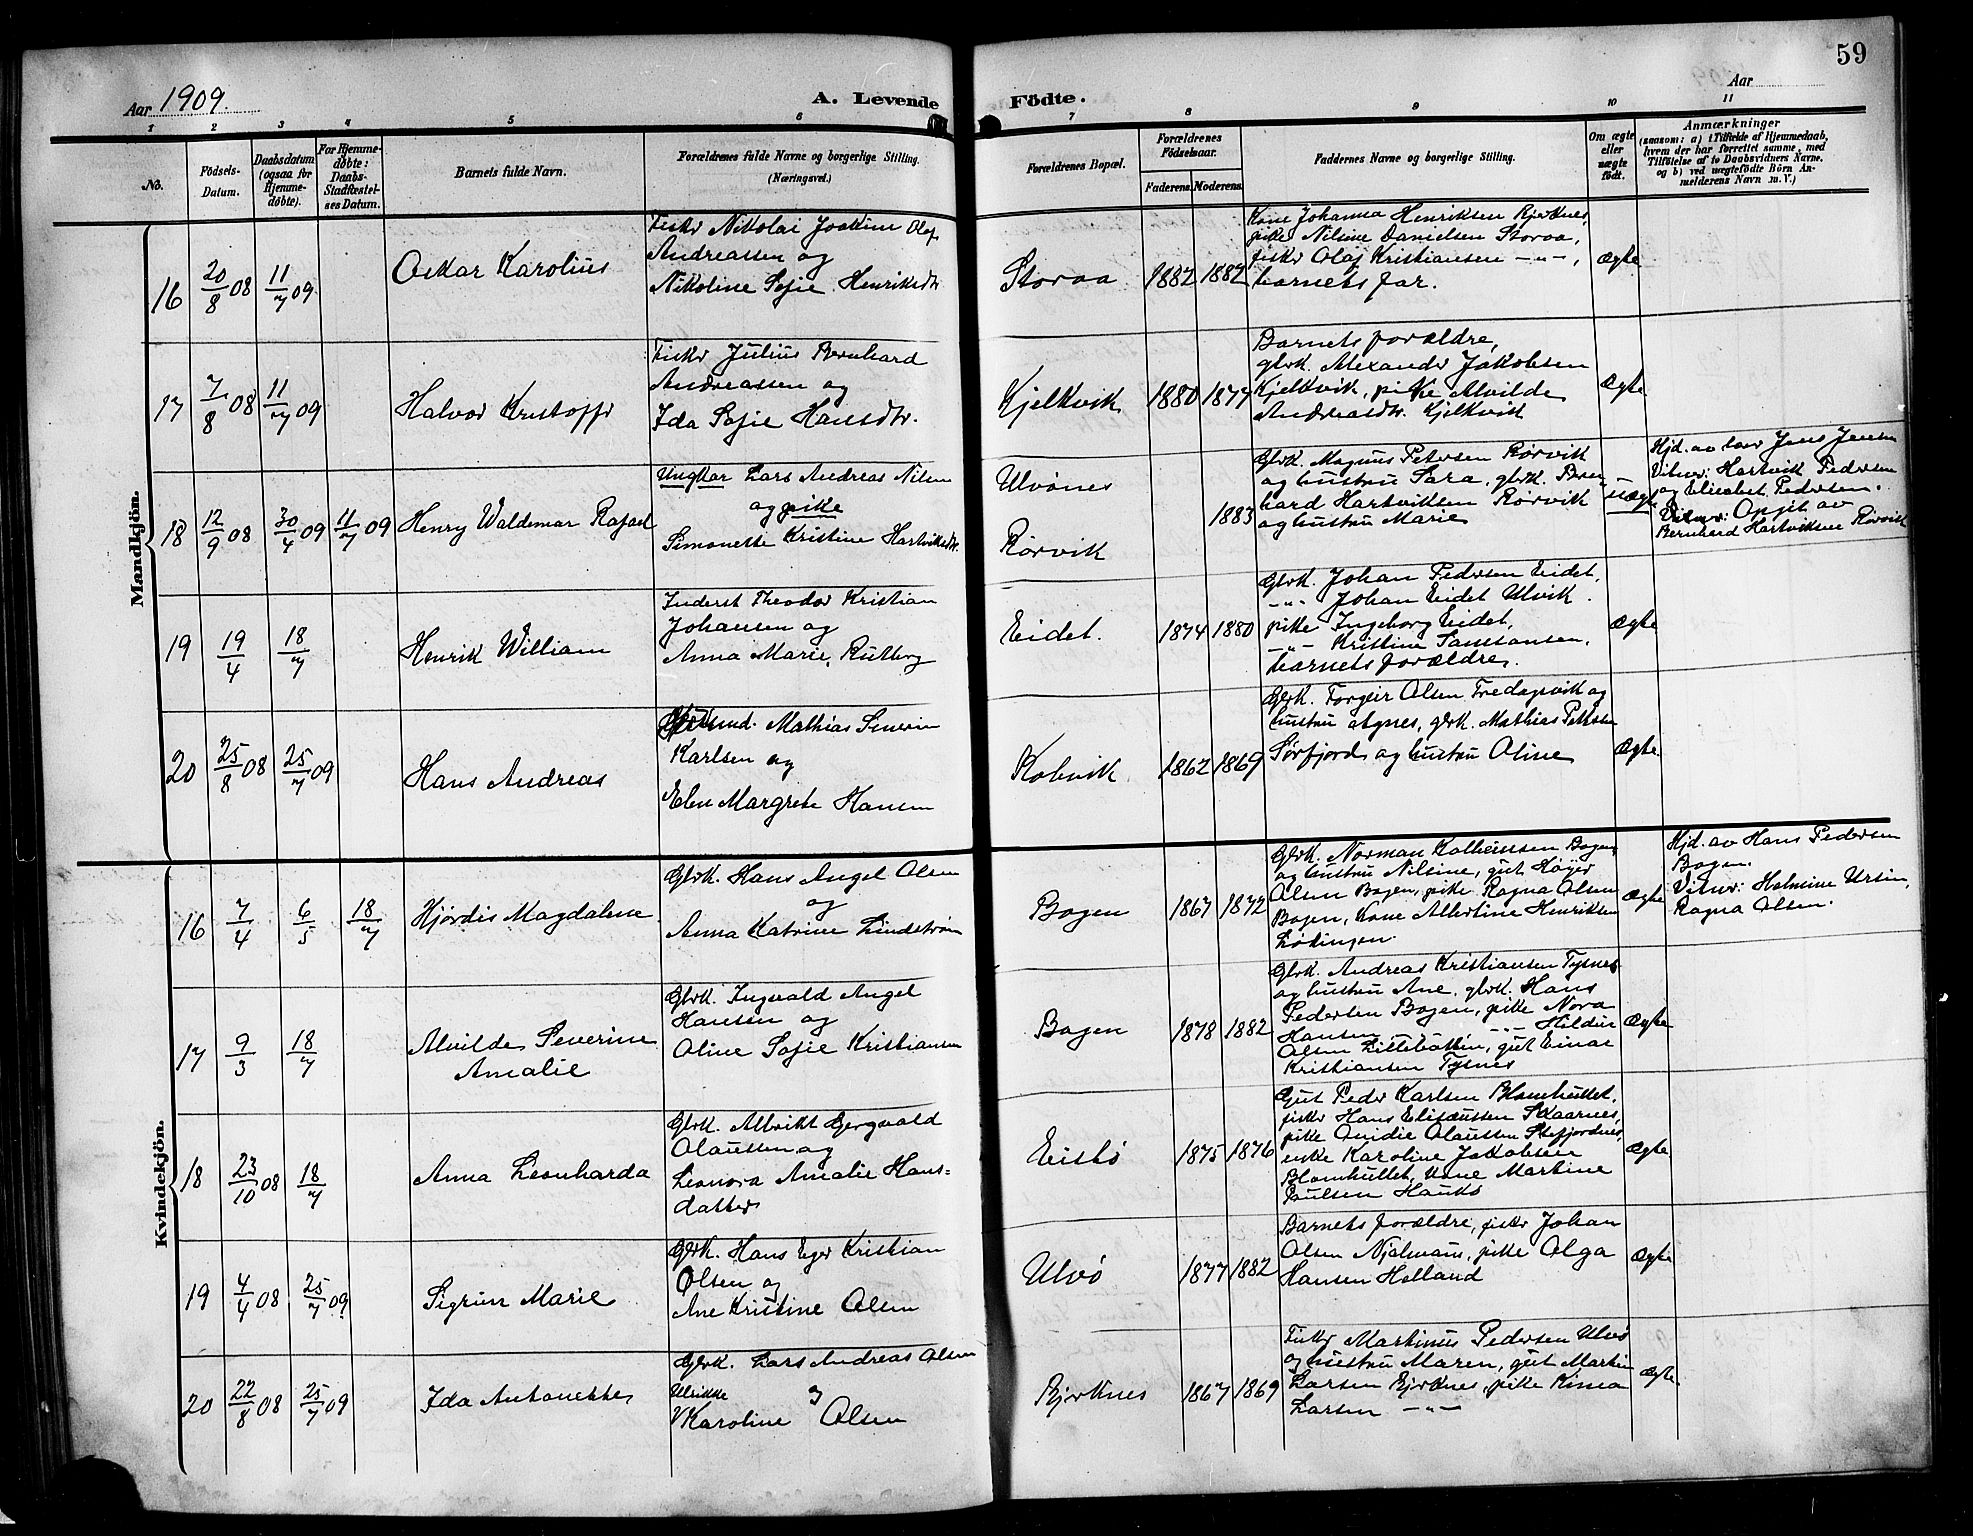 59
Aar 1909.
A. Levende Födte.
Aar
1 2 3 4 5 6 7 8 9 10 11
No.
Födsels-Datum.
Daabsdatum (ogsaa for Hjemme-døbte).
For Hjemme-døbte: Daabs-Stadfæstel-ses Datum.
Barnets fulde Navn.
Forældrenes fulde Navne og borgerlige Stilling.
(Næringsvei.)
Forældrenes Bopæl.
Forældrenes Födselsaar.
Faderens. Moderens.
Faddernes Navne og borgerlige Stilling.
Om ægte eller uægte født.
Anmærkninger
(saasom: a) i Tilfælde af Hjemmedaab,
hvem der har forrettet samme, med
Tilføielse af to Daabsvidners Navne,
og b) ved uægtefødte Börn An-
melderens Navn m. V.)
Mandkjön.
16 20/8 08 11/7 09. Oskar Karolius
Fisker Nikolai Joakim Olaf
Andreassen og
Nikoline Sofie Henriksdtr
Storaa 1882 1882
Kone Johanna Henriksen Bjerknes,
pike Nilsine Danielsen Storaa,
fisker Olaf Kristiansen -"-,
barnets far.
Ægte
17 7/8 08 11/7 09 Halvor Kristoffer
Fisker Julius Bernhard
Andreassen og
Ida Sofie Hansdtr.
Kjelkvik 1880 1877
Barnets forældre,
gbrk. Alexander Jakobsen
Kjelkvik, pike Alvilde
Andreasdtr. Kjelkvik
Ægte
18 12/9 08 30/4 09 11/7 09 Henry Waldemar Rafael
Ungkar Lars Andreas Nilsen
og pike
Simonette Kristine Hartviksdtr.
Ulvönes
Rørvik
1883
Gbrk. Magnus Petersen Rørvik
og hustru Sara, gbrk. Bern-
hard Hartviksen Rørvik
og hustru Marie
uægte
Hjd. av lær Jens Jensen
Vitner: Hartvik Pedersen
og Elisabet Pedersen.
Opgit av
Bernhard Hartviksen Rørvik
19 19/4 18/7 Henrik William
Inderst Theodor Kristian
Johansen og
Anna Marie Rutberg
Eidet. 1874 1880
Gbrk. Johan Pedersen Eidet,
-"- Johan Eidet Ulvik.
pike Ingeborg Eidet,
-"- Kristine Samsonsen,
barnets forældre.
Ægte
20 25/8 08 25/7 09 Hans Andreas
Mathias Severin
Karlsen og
Elen Margrete Hansen
Kobvik 1862 1869
Gbrk. Torgeir Olsen Fredagsvik og
hustru Agnes, gbrk. Mathias Petersen
Sørfjord og hustru Oline
Ægte.
Kvindekjön.
16 7/4 6/5 18/7 Hjördis Magdalene
Gbrk. Hans Angel Olsen
og
Anna Katrine Lindstrøm
Bogen 1867 1872
Gbrk. Norman Bogen
og hustru Nilsine, gut Høyer
Olsen Bogen, pike Ragna Olsen
Bogen, kone Albertine Henriksen
Lødingen.
Ægte
Hjd. av Hans Pedersen
Bogen.
Vitner: Helmine Ursin,
Ragna Olsen.
17 9/3 18/7 Alvilde Severine
Amalie
Gbrk. Ingvald Angel
Hansen og
Oline Sofie Kristiansen
Bogen 1878 1882
Gbrk. Andreas Kristiansen Tysnes
og hustru Ane, gbrk. Hans
Pedersen Bogen, pike Nora
Hansen -"- Hildur
Olsen Lillebotten, gut Einar
Kristiansen Tysnes
Ægte
18 23/10 08 18/7 Anna Leonharda
Gbrk. Albrikt
Olaussen og
Leonora Amalie Hans-
datter
1875 1876
Gut Peder Karlsen Blomhullet,
fisker Hans Eliseussen Skaarnes,
pike Olaussen Stefjordnes,
enke Karoline Jakobsen
Blomhullet, kone Martine
Paulsen
Ægte
19 4/4 08 25/7 09. Sigrun Marie
Gbrk. Hans Eger Kristian
Olsen og
Ane Kristine Olsen
Ulvö 1877 1882
Barnets forældre, fisker Johan
Olsen pike Olga
Hansen Helland
Ægte
20 22/8 08 25/7 09 Ida Antonette
Gbrk. Lars Andreas Olsen
Ulrikke og
Karoline Olsen
Bjerknes 1867 1869
Fisker Martinus Pedersen Ulvö
og hustru Maren, gut Martin
Larsen Bjerknes, pike
Larsen -"-
Ægte.